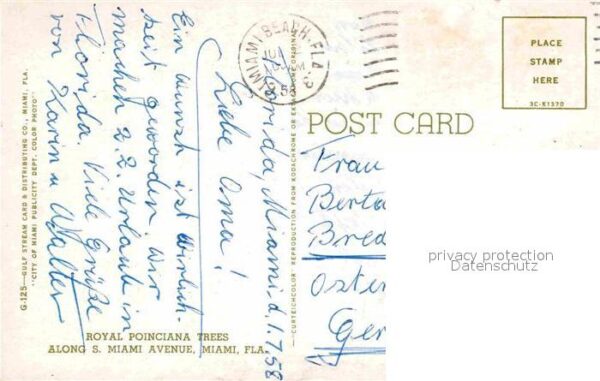 Florida, Miami d. 1.7.58
Liebe Oma!
Ein Wunsch ist Wirklich-
keit geworden. Wir
machen z. Z. Urlaub in
Florida. Viele Grüße
von Karin u Walter
ROYAL POINCIANA TREES
ALONG S. MIAMI AVENUE, MIAMI, FLA.
G-125—GULF STREAM CARD & DISTRIBUTING CO., MIAMI, FLA.
"CITY OF MIAMI PUBLICITY DEPT. COLOR PHOTO"
—CURTEICHCOLOR® REPRODUCTION FROM KODACHROME OR
MIAMI BEACH, FLA.
1958
PLACE
STAMP
HERE
3C-K1370
POST CARD
Frau
Berta
Bred
Oster
Ger
privacy protection
Datenschutz